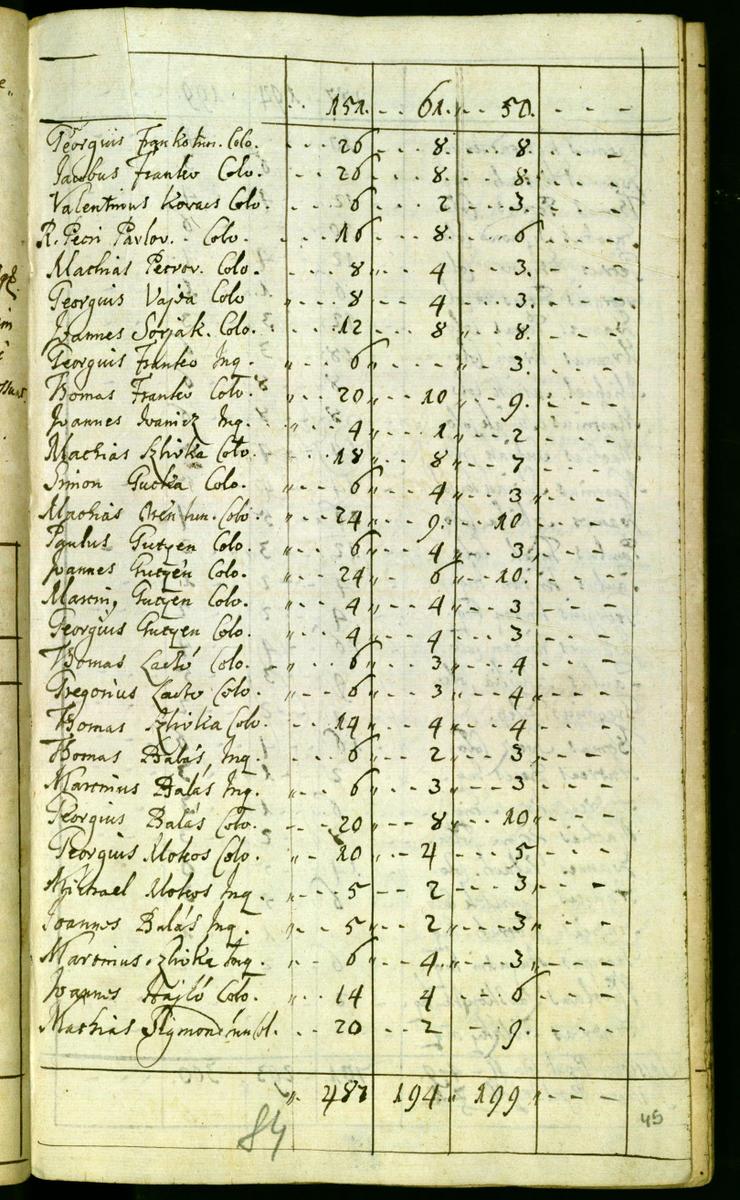 151. 61. 50.
Georgius Franko Colo. 26 8. 8.
Jacobus Franko Colo. 26 8. 8.
Valentinus Kovacs Colo. 6 2 3.
R. Petri Pavlov. Colo. 16 8 6
Mathias Petrov. Colo. 8 4 3.
Georgius Vajda Colo 8 4 3.
Joannes Sorjak. Colo. 12 8 8.
Georgius Franko Inq. 6 3.
Thomas Franko Colo. 20 10 9.
Joannes Ivanicz Inq. 4 1 2
Mathias Szlivka Colo. 18 8 7
Simon Gutka Colo. 6 4 3
Mathias Colo. 24 9. 10
Paulus Gutyen Colo. 6 4 3
Joannes Gutyen Colo. 24 6 10.
Martin, Gutyen Colo. 4 4 3
Georgius Gutyen Colo. 4 4 3
Thomas Latko Colo. 6 3 4
Gregorius Latko Colo. 6 3 4
Thomas Szlivka Colo. 14 4 4
Thomas Balás, Inq. 6 2 3
Martinus Balás Inq. 6 3 3
Georgius Balás Colo. 20 8 10
Georgius Mokos Colo. 10 4 5
Michael Mokos Inq. 5 2 3
Joannes Balás Inq. 5 2 3
Martinus Szlivka Inq. 6 4 3
Joannes Hajló Colo. 14 4 6
Mathias Sigmond 20 2 9.
487 194 199
84
45